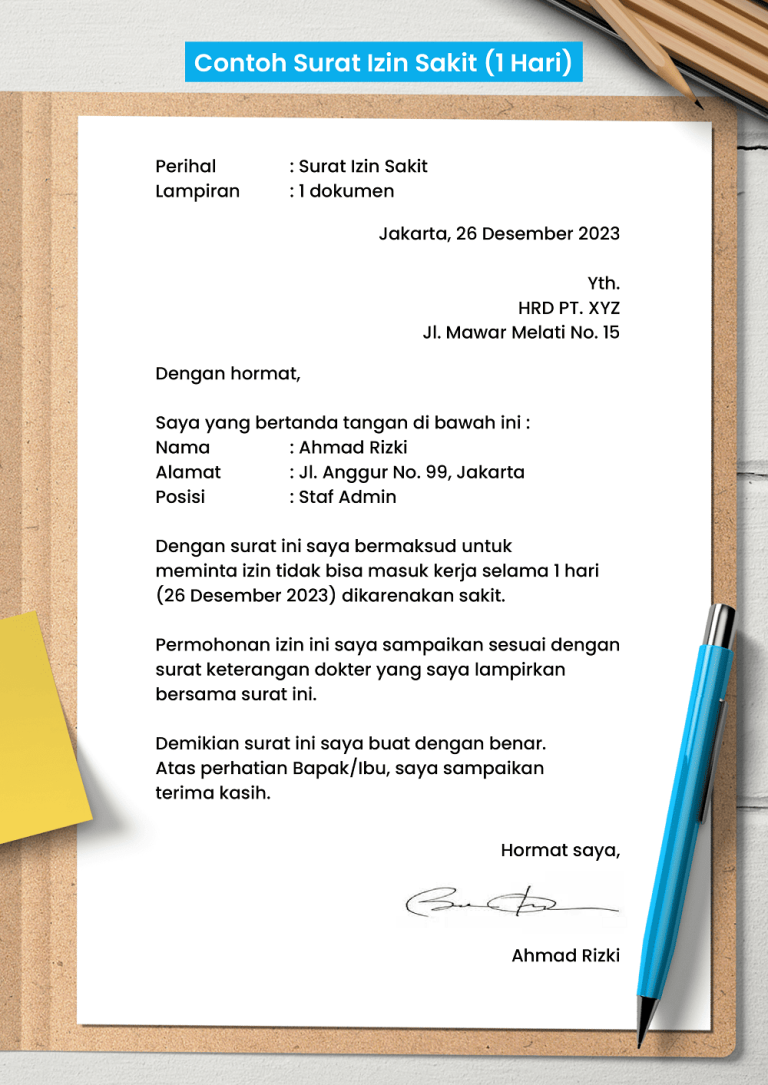 Contoh Surat Izin Sakit (1 Hari)
Perihal : Surat Izin Sakit
Lampiran : 1 dokumen
Jakarta, 26 Desember 2023
Yth.
HRD PT. XYZ
Jl. Mawar Melati No. 15
Dengan hormat,
Saya yang bertanda tangan di bawah ini :
Nama : Ahmad Rizki
Alamat : Jl. Anggur No. 99, Jakarta
Posisi : Staf Admin
Dengan surat ini saya bermaksud untuk
meminta izin tidak bisa masuk kerja selama 1 hari
(26 Desember 2023) dikarenakan sakit.
Permohonan izin ini saya sampaikan sesuai dengan
surat keterangan dokter yang saya lampirkan
bersama surat ini.
Demikian surat ini saya buat dengan benar.
Atas perhatian Bapak/Ibu, saya sampaikan
terima kasih.
Hormat saya,
Ahmad Rizki